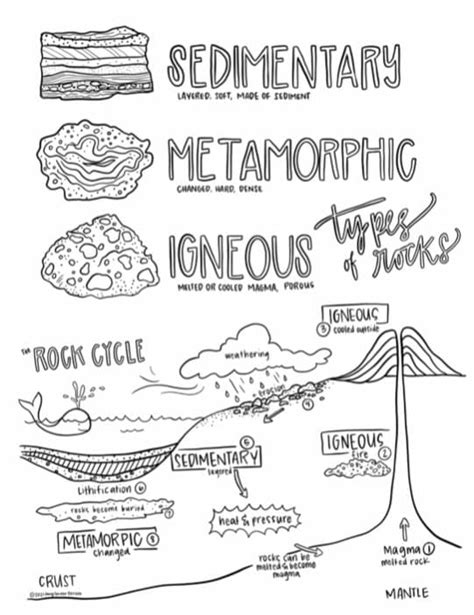 SEDIMENTARY
LAYERED, SOFT, MADE OF SEDIMENT
METAMORPHIC
CHANGED, HARD, DENSE
IGNEOUS
MELTED OR COOLED MAGMA, POROUS
types
of rocks
THE ROCK CYCLE
IGNEOUS
3 cooled outside
weathering
+ erosion
4
IGNEOUS
fire 2
5
SEDIMENTARY
layered
lithification 6
rocks become buried 7
heat & pressure
METAMORPIC 8
changed
rocks can be
melted & become
magma
Magma 1
melted rock
CRUST
MANTLE